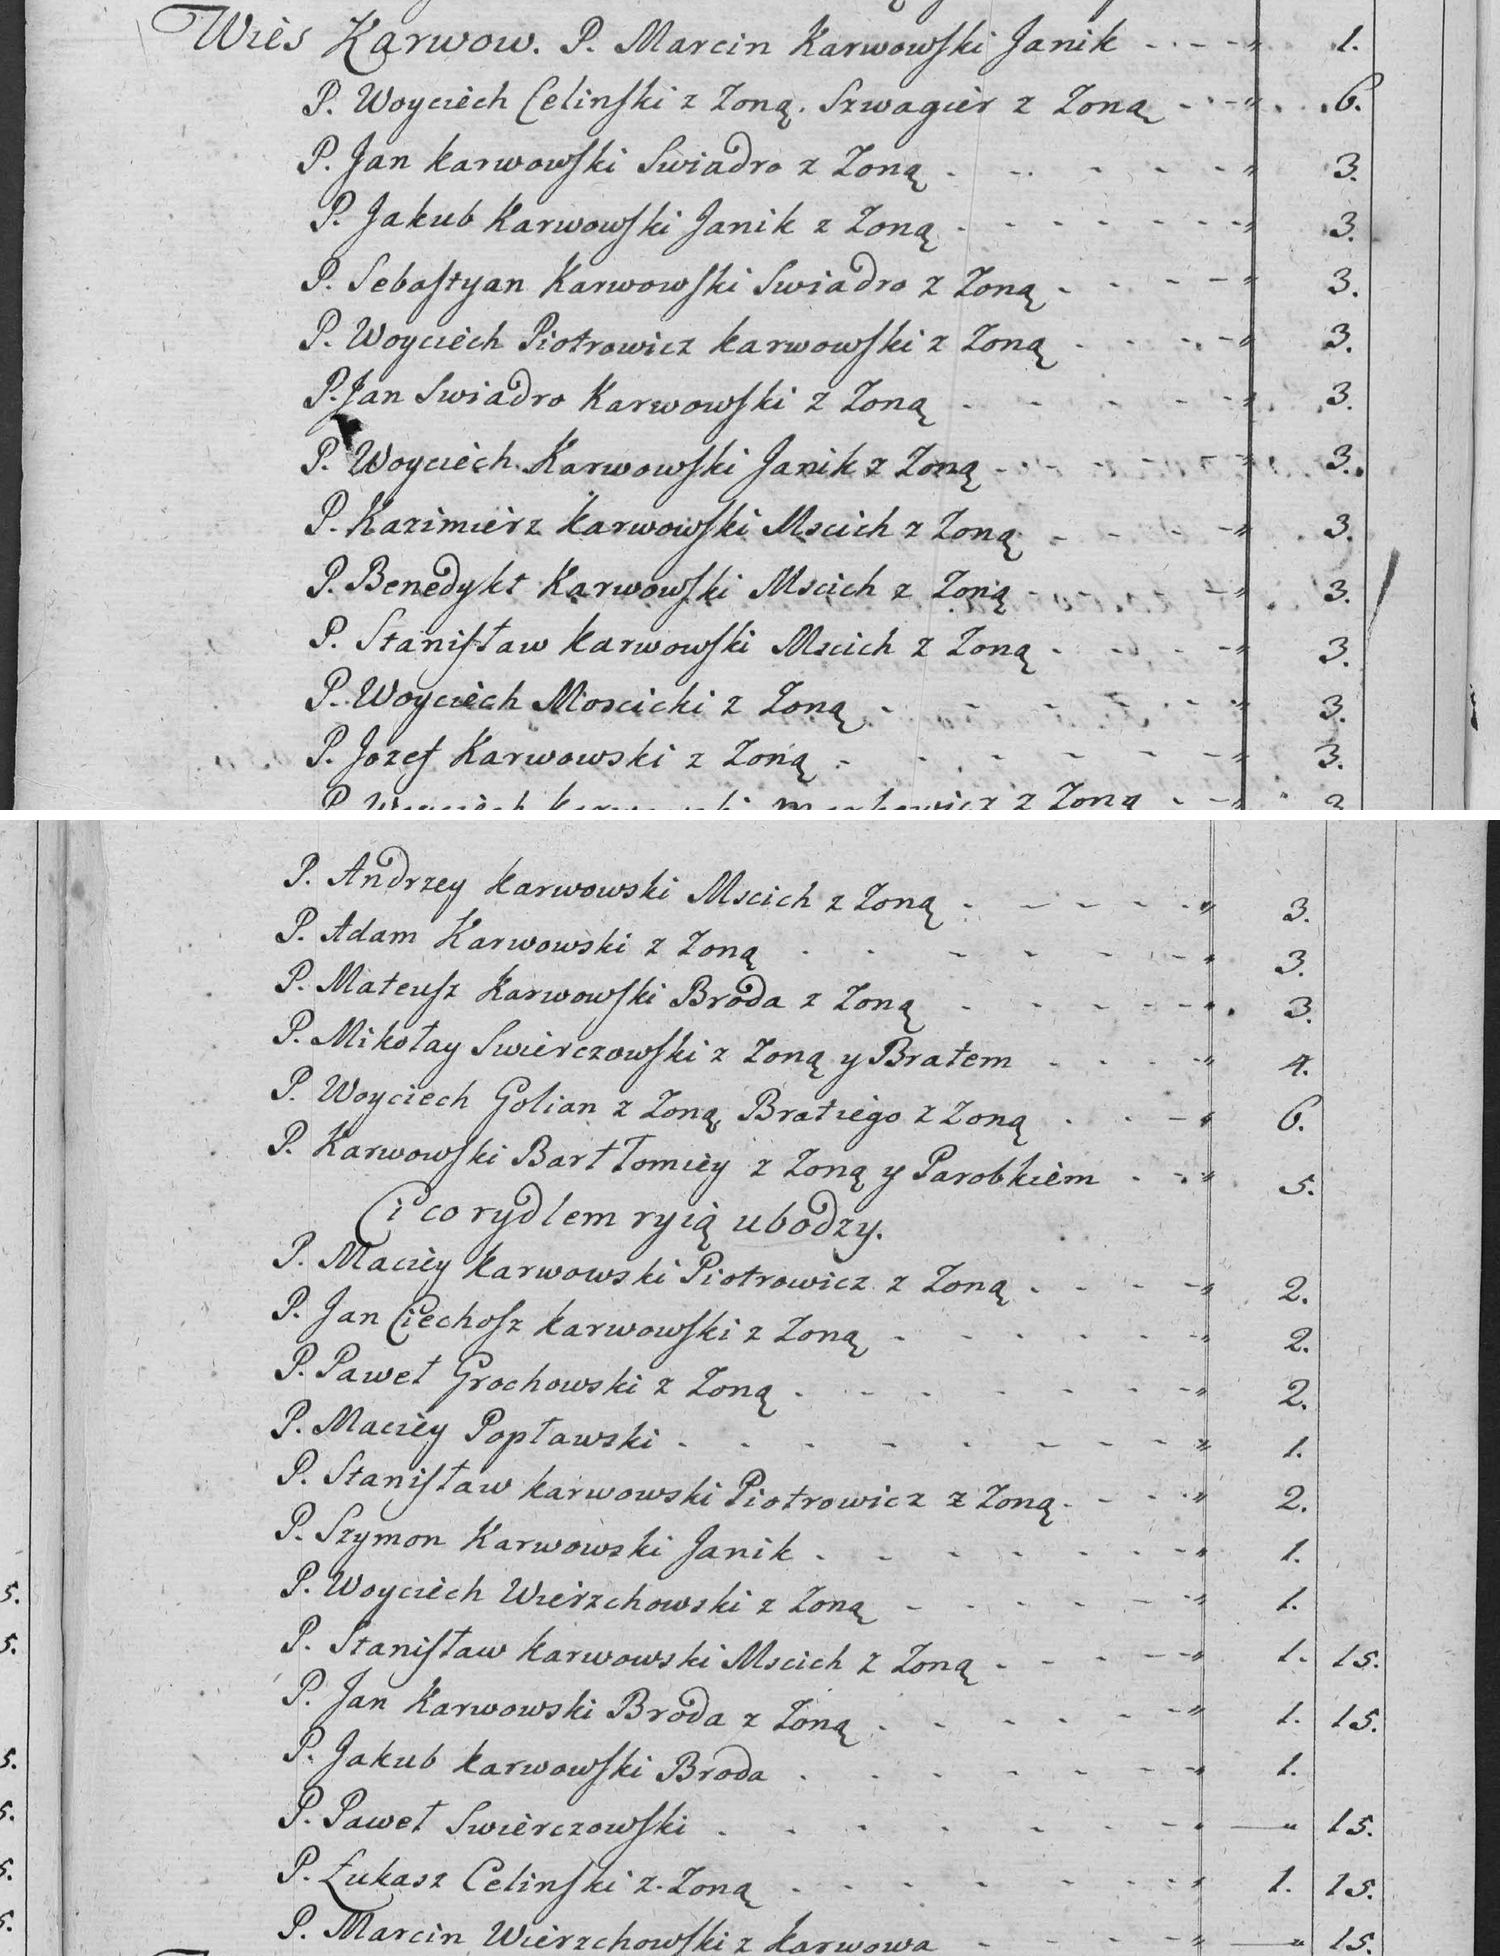 Wies Karwow. P. Marcin Karwowski Janik - - - " 1.
P. Woyciech Celinski z Zoną. Szwagier z Zoną - - - " 6.
P. Jan Karwowski Swiadro z Zoną - - - - - " 3.
P. Jakub Karwowski Janik z Zoną - - - - - - " 3.
P. Sebastyan Karwowski Swiadro z Zoną - - - - " 3.
P. Woyciech Piotrowicz Karwowski z Zoną - - - - " 3.
P. Jan Swiadro Karwowski z Zoną - - - - - " 3.
P. Woyciech Karwowski Janik z Zoną - - - - - " 3.
P. Kazimierz Karwowski Mscich z Zoną - - - - " 3.
P. Benedykt Karwowski Mscich z Zoną - - - " 3.
P. Stanisław Karwowski Mscich z Zoną - - - - " 3.
P. Woyciech Moscicki z Zoną - - - - - - " 3.
P. Jozef Karwowski z Zoną - - - - - - " 3.
P. Woyciech z Zoną - - " 3
P. Andrzey Karwowski Mscich z Zoną - - - - - " 3.
P. Adam Karwowski z Zoną - - - - - - " 3.
P. Mateusz Karwowski Broda z Zoną - - - - - " 3.
P. Mikołay Swierczowski z Zoną y Bratem - - - - " 4.
P. Woyciech Golian z Zoną, Brat iego z Zoną - - - " 6.
P. Karwowski Bartłomiey z Zoną y Parobkiem - - " 5.
Ci co rydlem ryią ubodzy.
P. Maciey Karwowski Piotrowicz z Zoną - - - - " 2.
P. Jan Ciechosz Karwowski z Zoną - - - - - - " 2.
P. Paweł Grochowski z Zoną - - - - - - - " 2.
P. Maciey Popławski - - - - - - - - " 1.
P. Stanisław Karwowski Piotrowicz z Zoną - - - " 2.
P. Szymon Karwowski Janik - - - - - - - " 1.
P. Woyciech Wierzchowski z Zoną - - - - - " 1.
P. Stanisław Karwowski Mscich z Zoną - - - - - " 1. 15.
P. Jan Karwowski Broda z Zoną - - - - - - " 1. 15.
P. Jakub Karwowski Broda - - - - - - " 1.
5.
P. Paweł Swierczowski - - - - - - - " — " 15.
P. Łukasz Celinski z Zoną - - - - - - - " 1. 15.
P. Marcin Wierzchowski z Karwowa - - - - " — " 15.